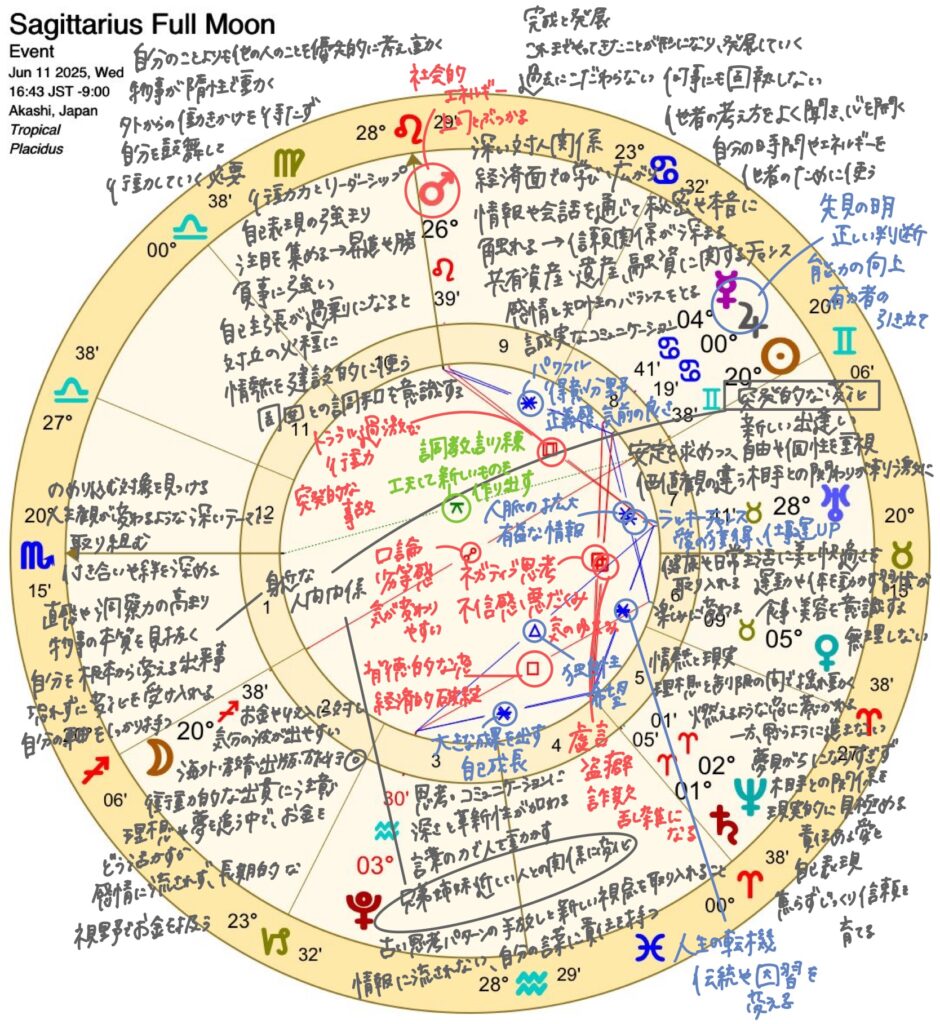 Sagittarius Full Moon
Event
Jun 11 2025, Wed
16:43 JST -9:00
Akashi, Japan
Tropical
Placidus
自分のことよりも他の人のことを優先的に考え動く
物事が惰性で動く
外からの働きかけを待たず
自分を鼓舞して
行動していく必要
完成と発展
これまでやってきたことが形になり、発展していく
過去にこだわらない 何事にも固執しない
他者の考え方をよく聞き、心を開く
自分の時間やエネルギーを
他者のために使う
社会的
エネルギー
上司とぶつかる
行動力とリーダーシップ
自己表現の強まり
注目を集める→昇進や勝
負事に強い
自己主張が過剰になると
対立の火種に
情熱を建設的に使う
周囲との調和を意識する
深い対人関係
経済面での学び 広がり
情報や会話を通じて秘密や本音に
触れる→信頼関係が深まる
共有資産、遺産、融資に関するチャンス
感情と知性のバランスをとる
誠実なコミュニケーション
先見の明
正しい判断
能力の向上
有力者の
引き立て
突発的な変化
新しい出逢い
安定を求めつつ、自由や個性を重視
価値観の違う相手との関わりが刺激に
パワフル
得意分野
正義感、気前の良さ
トラブル、過激な
行動力
突発的な
事故
調教、訓練
工夫して新しいものを
作り出す
人脈の拡大
有益な情報
口論
劣等感
気が変わり
やすい
ネガティブ思考
不信感、悪だくみ
独創性
希望
経済的破綻
大きな成果を出す
自己成長
虚言
盗癖
詐欺
乱雑になる
身近な
人間関係
のめり込む対象を見つける
人生観が変わるような深いテーマに
取り組む
付き合いや絆を深める
直感や洞察力の高まり
物事の本質を見抜く
自分を根本から変える出来事
恐れずに変化を受け入れる
自分の軸をしっかり持つ
お金や収入に対し
気分の波が出やすい
海外・教育・出版・旅行
衝動的な出費に注意
理想や夢を追う中で、お金を
どう活かすか
感情に流されず、長期的な
視野でお金を扱う
思考、コミュニケーションに
深さと革新性が加わる
言葉の力で人を動かす
兄弟姉妹、近しい人との関係に変化
古い思考パターンの手放しと新しい視点を取り入れること
情報に流されない、自分の言葉に責任を持つ
仕事運UP
健康や日常生活に美と快適さを
取り入れる 運動や体を動かす習慣が
楽しみに変わる 食事、美容を意識する
無理しない
情熱と現実
理想と制限の間で揺れ動く
燃えるような恋に惹かれる
一方、思うように進まない
夢見がちになりすぎず
相手との関係を
現実的に見極める
責任ある愛と
自己表現
焦らずじっくり信頼を
育てる
人生の転機
伝統や因習を
変える
28°
29'
26°
39'
23°
32'
04°
41'
00°
19'
20°
38'
20°
06'
28°
11'
20°
15'
05°
09'
38'
27°
02°
01'
01°
05'
38'
00°
28°
29'
03°
30'
23°
32'
20°
38'
06'
20°
15'
38'
27°
00°
1
2
3
4
5
6
7
8
9
10
11
12